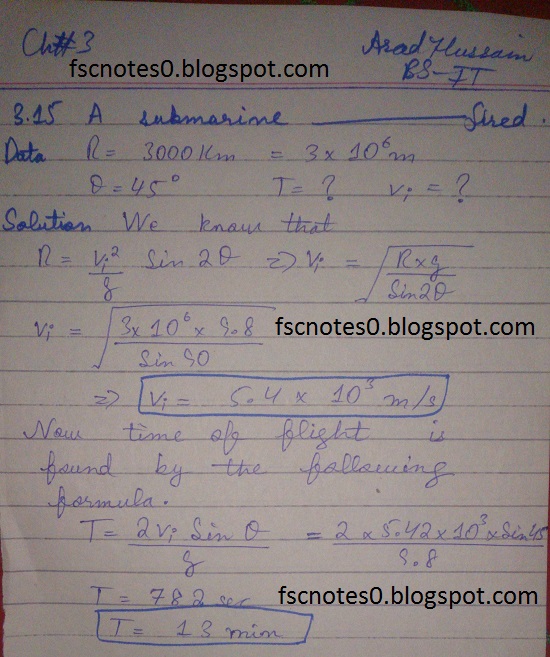 Ch#3 Asad Hussain
fscnotes0.blogspot.com BS-IT
3.15 A submarine ——— fired.
Data R = 3000 Km = 3 x 10⁶ m
θ = 45° T = ? vi = ?
Solution We know that
R = vi²/g Sin 2θ => vi = √(R x g / Sin2θ)
vi = √(3 x 10⁶ x 9.8 / Sin 90) fscnotes0.blogspot.com
=> vi = 5.4 x 10³ m/s
Now time of flight is
found by the following
formula.
T = 2vi Sin θ / g = 2 x 5.42 x 10³ x Sin 45 / 9.8
T = 782 sec fscnotes0.blogspot.com
T = 13 min